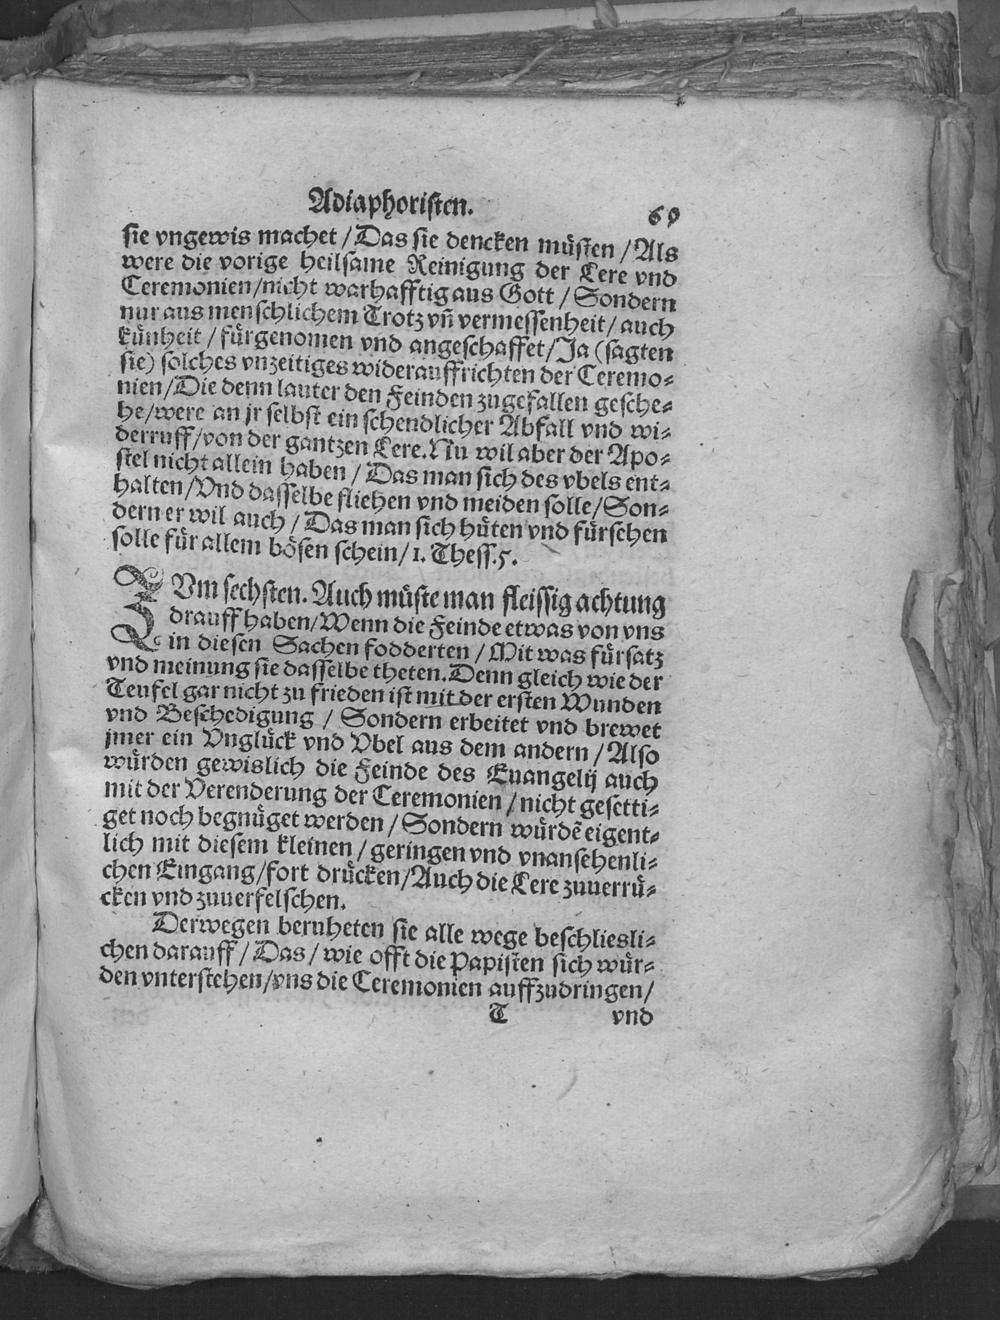 Adiaphoristen. 69
sie vngewis machet / Das sie dencken müsten / Als
were die vorige heilsame Reinigung der Lere vnd
Ceremonien / nicht warhafftig aus Gott / Sondern
nur aus menschlichem Trotz vñ vermessenheit / auch
künheit / fürgenomen vnd angeschaffet / Ja (sagten
sie) solches vnzeitiges widerauffrichten der Ceremo⸗
nien / Die denn lauter den Feinden zugefallen gesche⸗
he / were an jr selbst ein schendlicher Abfall vnd wi⸗
derruff / von der gantzen Lere. Nu wil aber der Apo⸗
stel nicht allein haben / Das man sich des vbels ent⸗
halten / Vnd dasselbe fliehen vnd meiden solle / Son⸗
dern er wil auch / Das man sich hüten vnd fürsehen
solle für allem bösen schein / 1. Thess. 5.
ZVm sechsten. Auch müste man fleissig achtung
drauff haben / Wenn die Feinde etwas von vns
in diesen Sachen fodderten / Mit was fürsatz
vnd meinung sie dasselbe theten. Denn gleich wie der
Teufel gar nicht zu frieden ist mit der ersten Wunden
vnd Beschedigung / Sondern erbeitet vnd brewet
jmer ein Vnglück vnd Vbel aus dem andern / Also
würden gewislich die Feinde des Euangelij auch
mit der Verenderung der Ceremonien / nicht gesetti⸗
get noch begnüget werden / Sondern würdē eigent⸗
lich mit diesem kleinen / geringen vnd vnansehenli⸗
chen Eingang / fort drücken / Auch die Lere zuuerrü⸗
cken vnd zuuerfelschen.
Derwegen beruheten sie alle wege beschliesli⸗
chen darauff / Das / wie offt die Papisten sich wür⸗
den vnterstehen / vns die Ceremonien auffzudringen /
T vnd